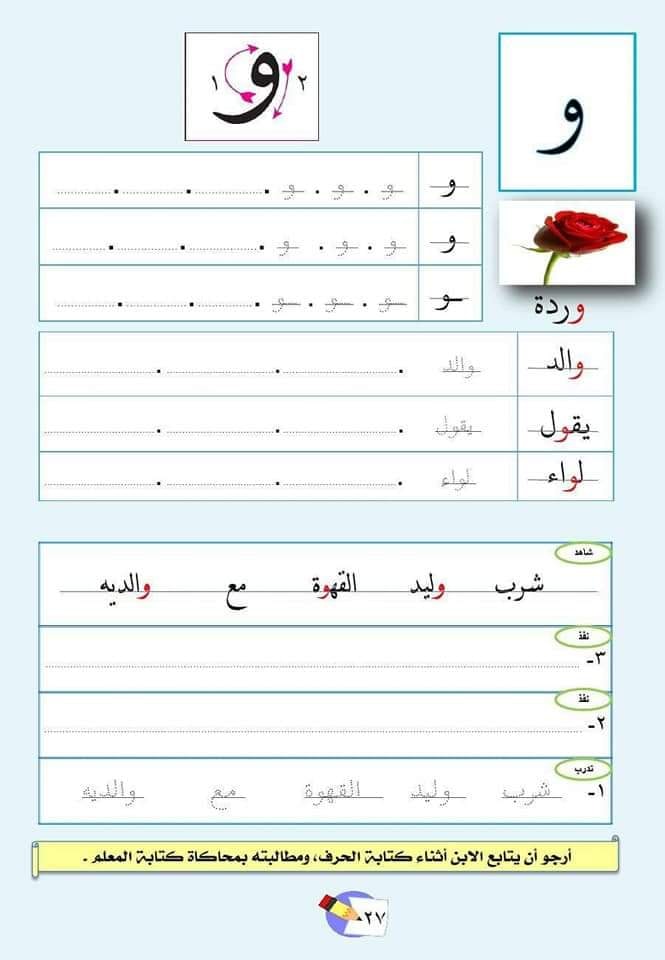 و
١ و ٢
وردة
و و . و . و .
و و . و . و .
ـو ـو . ـو . ـو .
والد والد
يقول يقول
لواء لواء
شاهد
شرب وليد القهوة مع والديه
نفذ
٣-
نفذ
٢-
تدرب
١- شرب وليد القهوة مع والديه
أرجو أن يتابع الابن أثناء كتابة الحرف، ومطالبته بمحاكاة كتابة المعلم .
٢٧